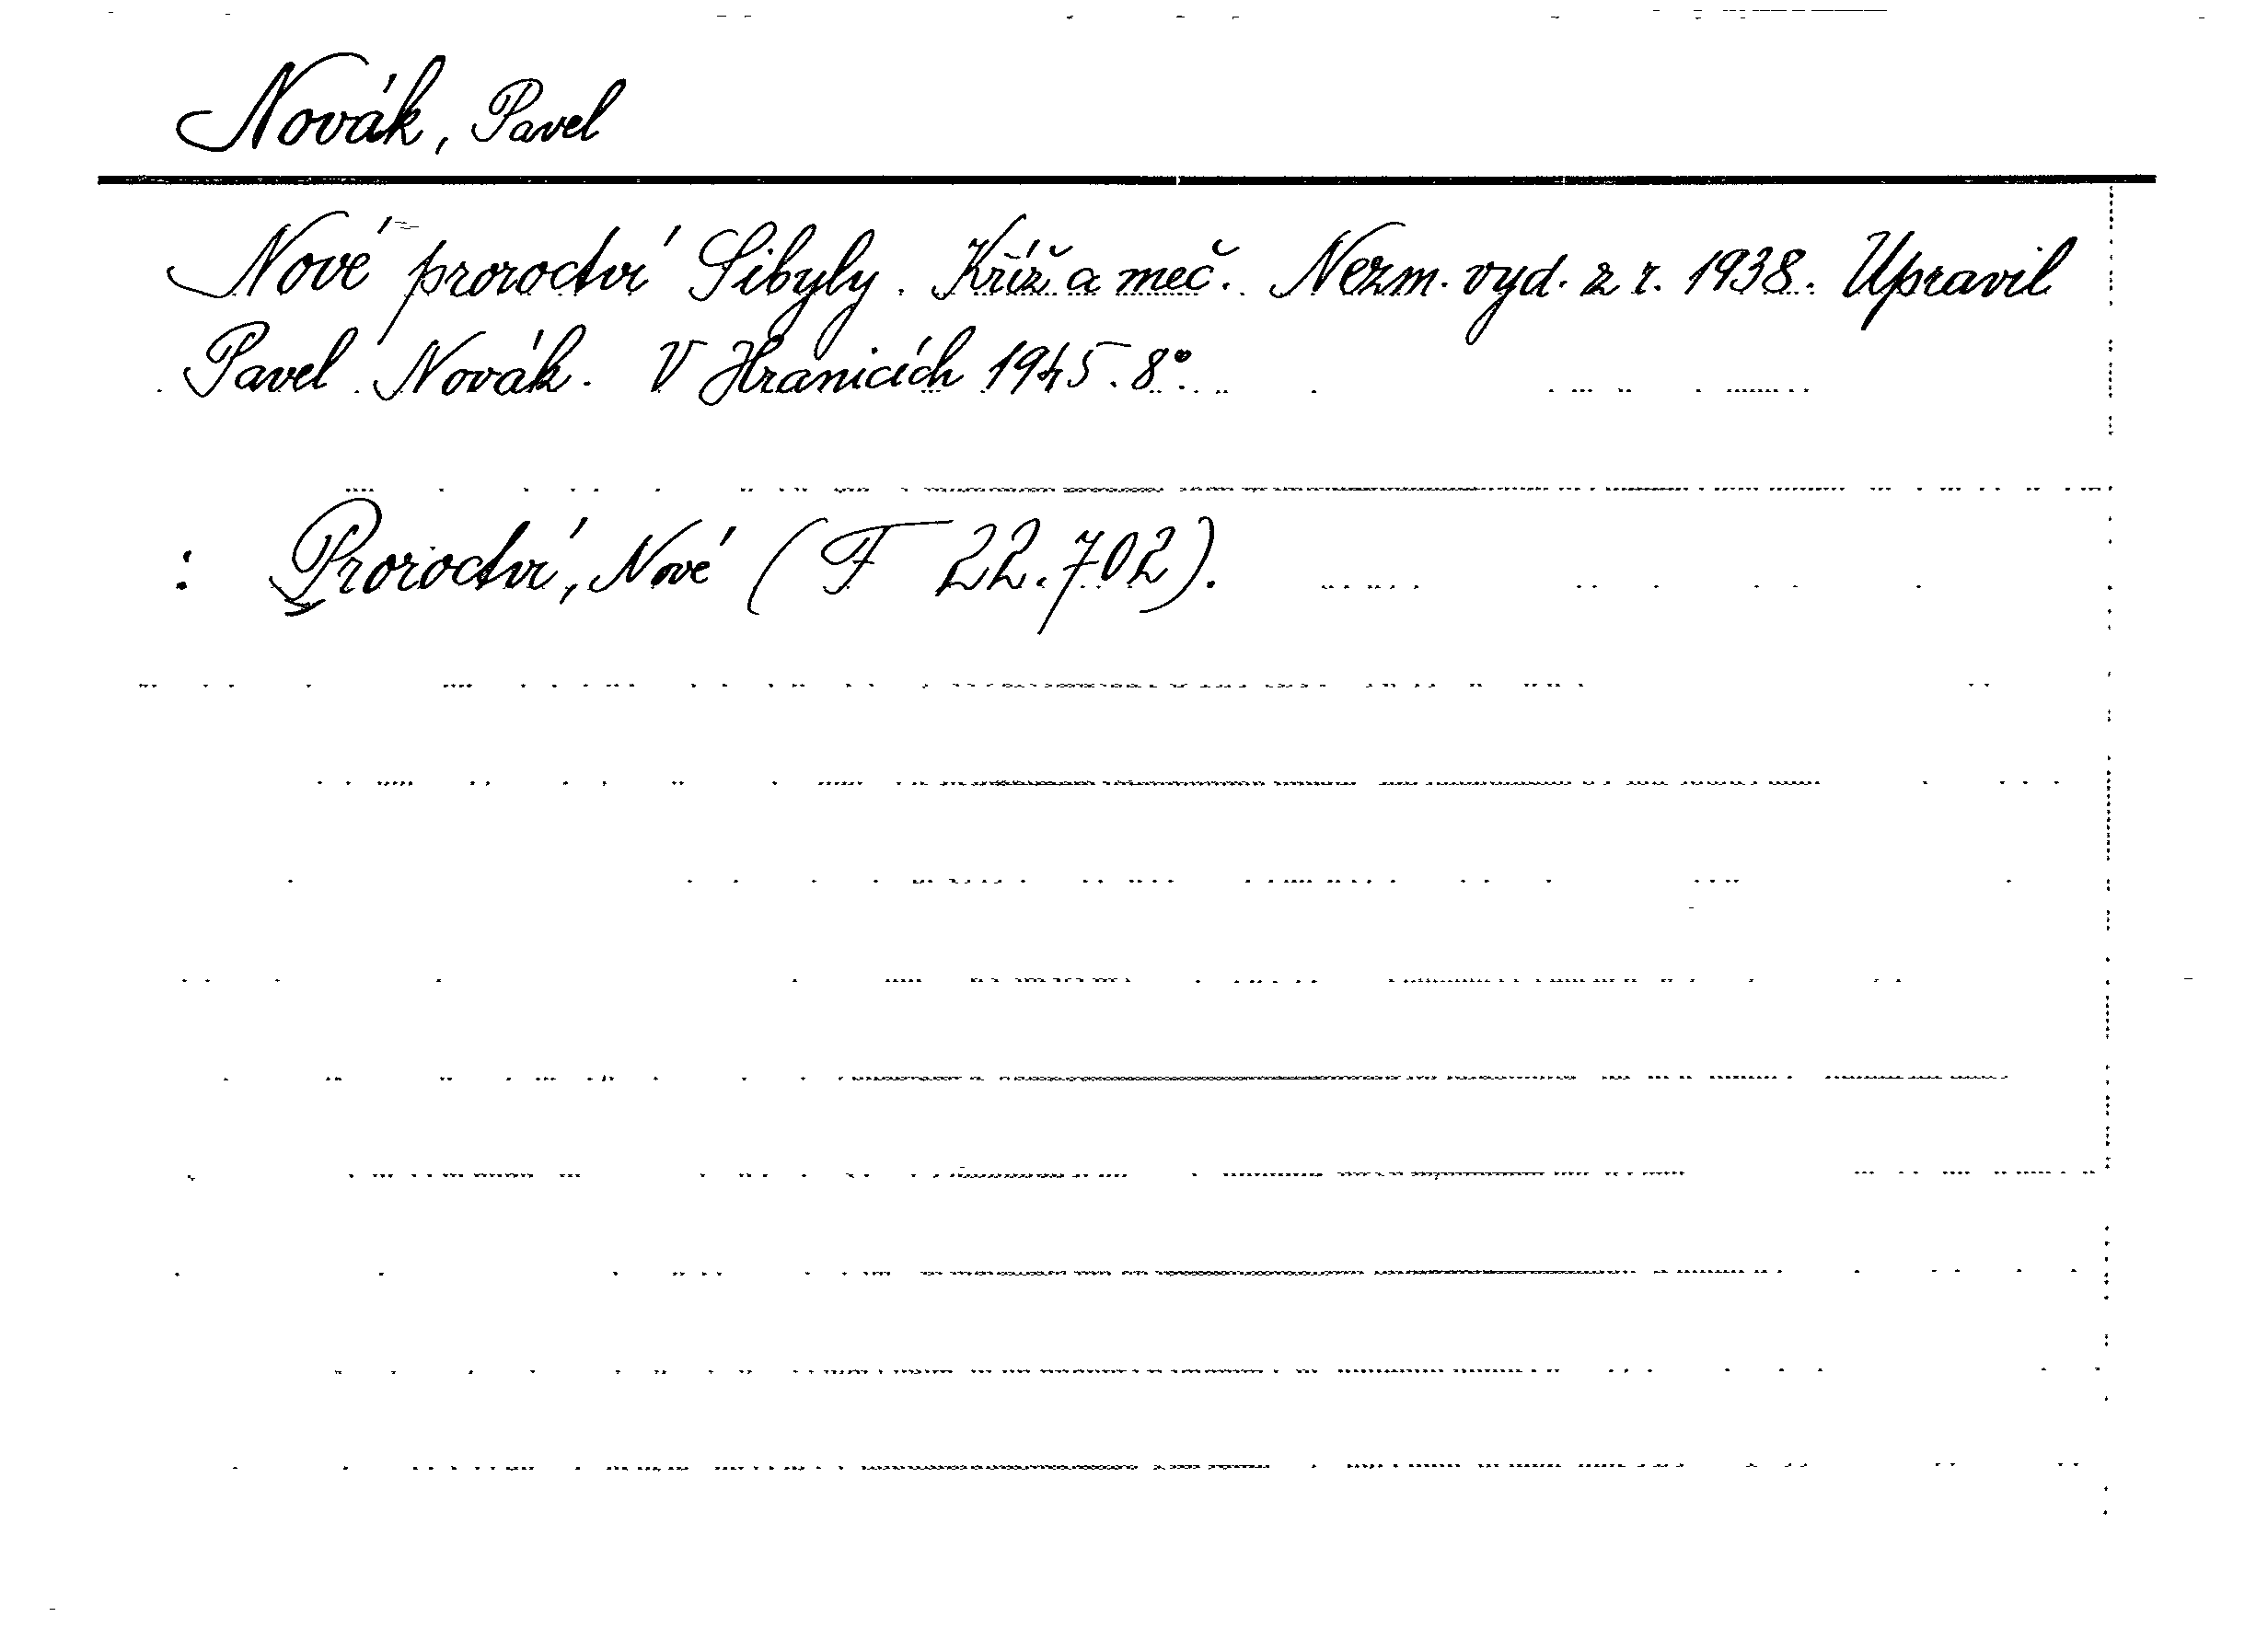 Novák, Pavel
Nové proroctví Sibyly. Kříž a meč. Nezm. vyd. z r. 1938. Upravil
Pavel Novák. V Hranicích 1945. 8°.
: Proroctví, Nové (F 22.702).